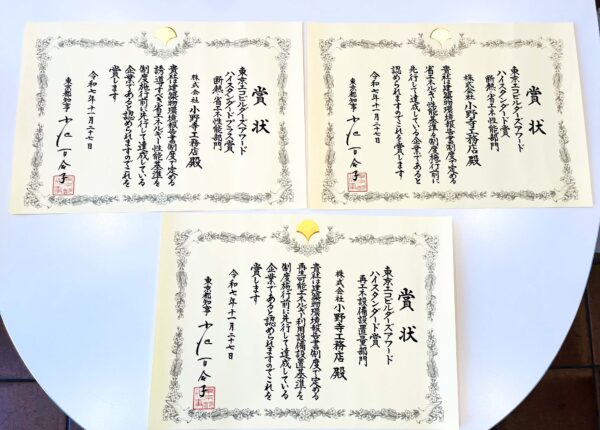 賞状
東京エコビルダーズアワード
ハイスタンダードプラス賞
断熱・省エネ性能部門
株式会社小野寺工務店 殿
貴社は建築物環境報告書制度で定める
誘導すべき省エネルギー性能基準を
制度施行前に先行して達成している
企業であると認められますのでこれを
賞します
令和七年十一月二十七日
東京都知事 小池百合子
賞状
東京エコビルダーズアワード
ハイスタンダード賞
断熱・省エネ性能部門
株式会社小野寺工務店 殿
貴社は建築物環境報告書制度で定める
省エネ性能基準を制度施行前に
先行して達成している企業であると
認められますのでこれを賞します
令和七年十一月二十七日
東京都知事 小池百合子
賞状
東京エコビルダーズアワード
ハイスタンダード賞
再エネ設備設置量部門
株式会社小野寺工務店 殿
貴社は建築物環境報告書制度で定める
再生可能エネルギー利用設備設置基準を
制度施行前に先行して達成している
企業であると認められますのでこれを
賞します
令和七年十一月二十七日
東京都知事 小池百合子